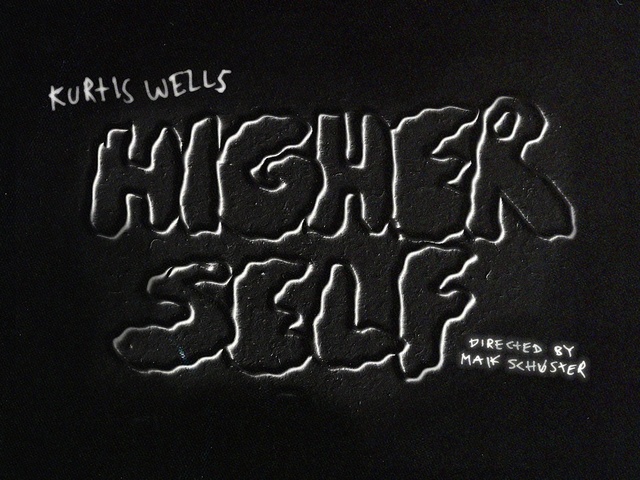 KURTIS WELLS
HIGHER
SELF
DIRECTED BY
MAIK SCHUSTER